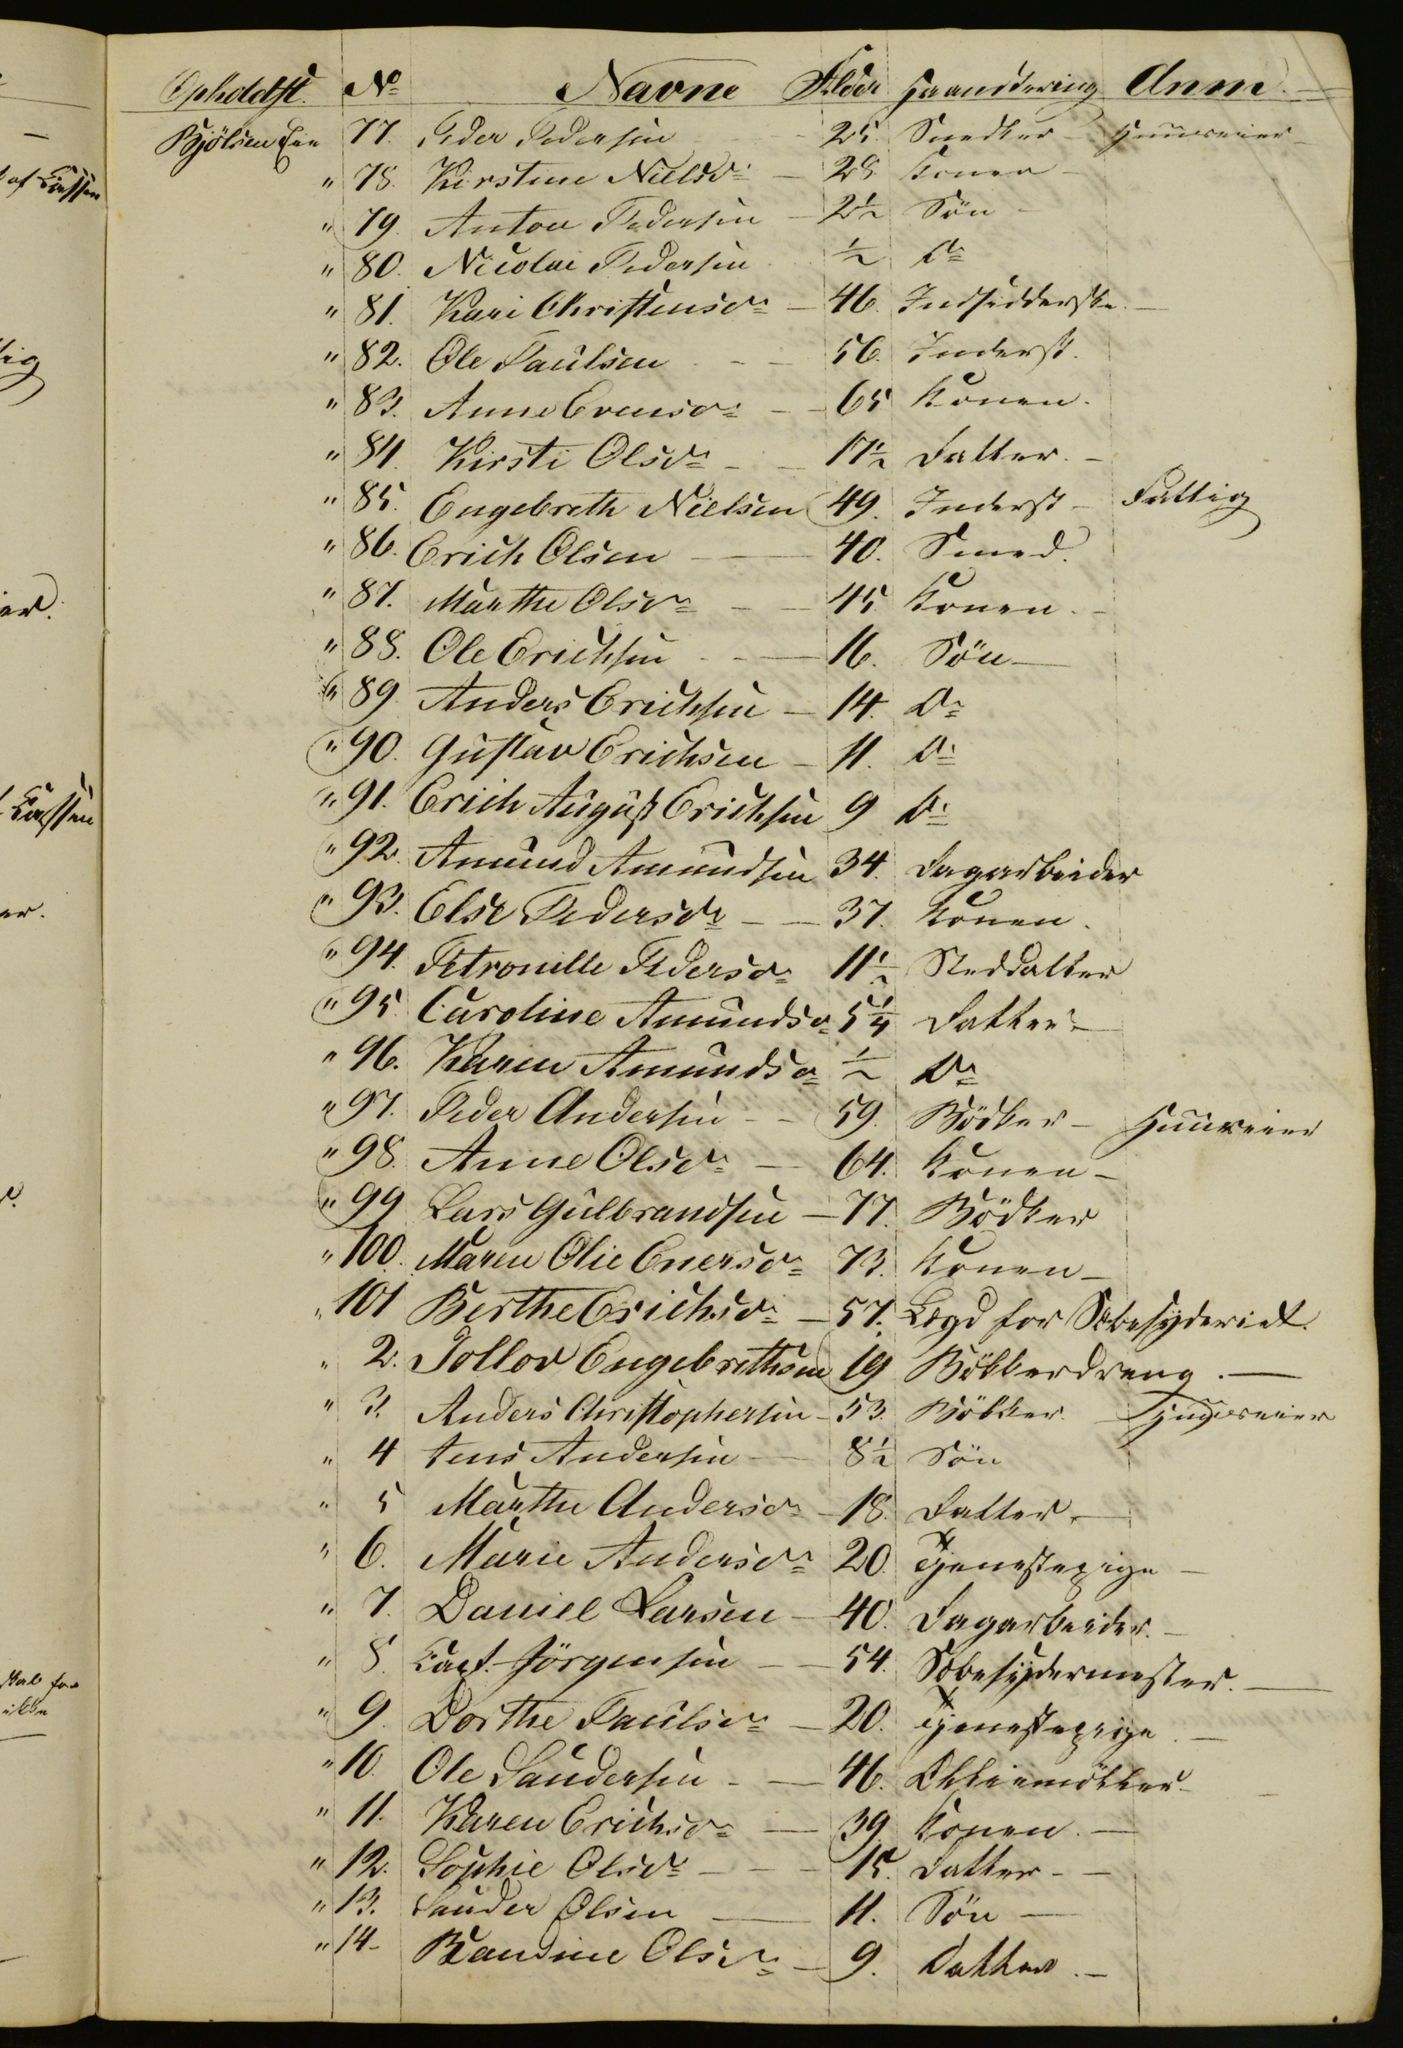 Opholdst. No Navne Alder Haandtering Anm.
Bjölsen Eie 77. Peder Pedersen 25. Snedker - Huuseier -
" 78. Kirstine Nielsdr - 28 Konen -
" 79. Anton Pedersen - 2½ Sön -
" 80. Nicolai Pedersen ½ Do
" 81. Kari Christensdr - 46. Indsidderske. -
" 82. Ole Paulsen - 56. Inderst.
" 83. Anne Evensdr - 65 Konen.
" 84. Kirsti Olsdr - 17½ Datter. -
" 85. Engebreth Nielsen 49. Inderst - Fattig
" 86. Erich Olsen - 40. Smed.
" 87. Marthe Olsdr - 45 Konen. -
" 88. Ole Erichsen - 16. Sön -
" 89 Anders Erichsen - 14. Do
" 90. Gustav Erichsen - 11. Do
" 91. Erich August Erichsen 9 Do
" 92. Amund Amundsen 34. Dagarbeider
" 93. Else Pedersdr - 37. Konen.
" 94. Petronille Pedersdr 11½ Steddatter
" 95. Caroline Amundsdr 5¼ Datter -
" 96. Karen Amundsdr ½ Do
" 97. Peder Andersen - 59. Bödker - Huuseier
" 98. Anne Olsdr - 64. Konen -
" 99 Lars Gulbrandsen - 77. Bödker
" 100. Maren Olie Enersdr 73. Konen -
" 101 Berthe Erichsdr - 57. Lægd for Sæbesyderiet.
" 2. Tollov Engebrethsen 19 Bökkerdreng. -
" 3. Anders Christophersen - 53. Bökker. Huuseier
" 4 Jens Andersen - 8½ Sön
" 5 Marthe Andersdr - 18. Datter. -
" 6. Marie Andersdr 20. Tjenestepige -
" 7. Daniel Larsen - 40. Dagarbeider. -
" 8. Capt. Jörgensen - 54. Sæbesydermester. -
" 9. Dorthe Paulsdr - 20. Tjenestepige. -
" 10. Ole Sandersen - 46. Oliemöller -
" 11. Karen Erichsdr - 39. Konen. -
" 12. Sophie Olsdr - 15. Datter - -
" 13. Sander Olsen - 11. Sön -
" 14 - Olsdr - 9. Datter. -